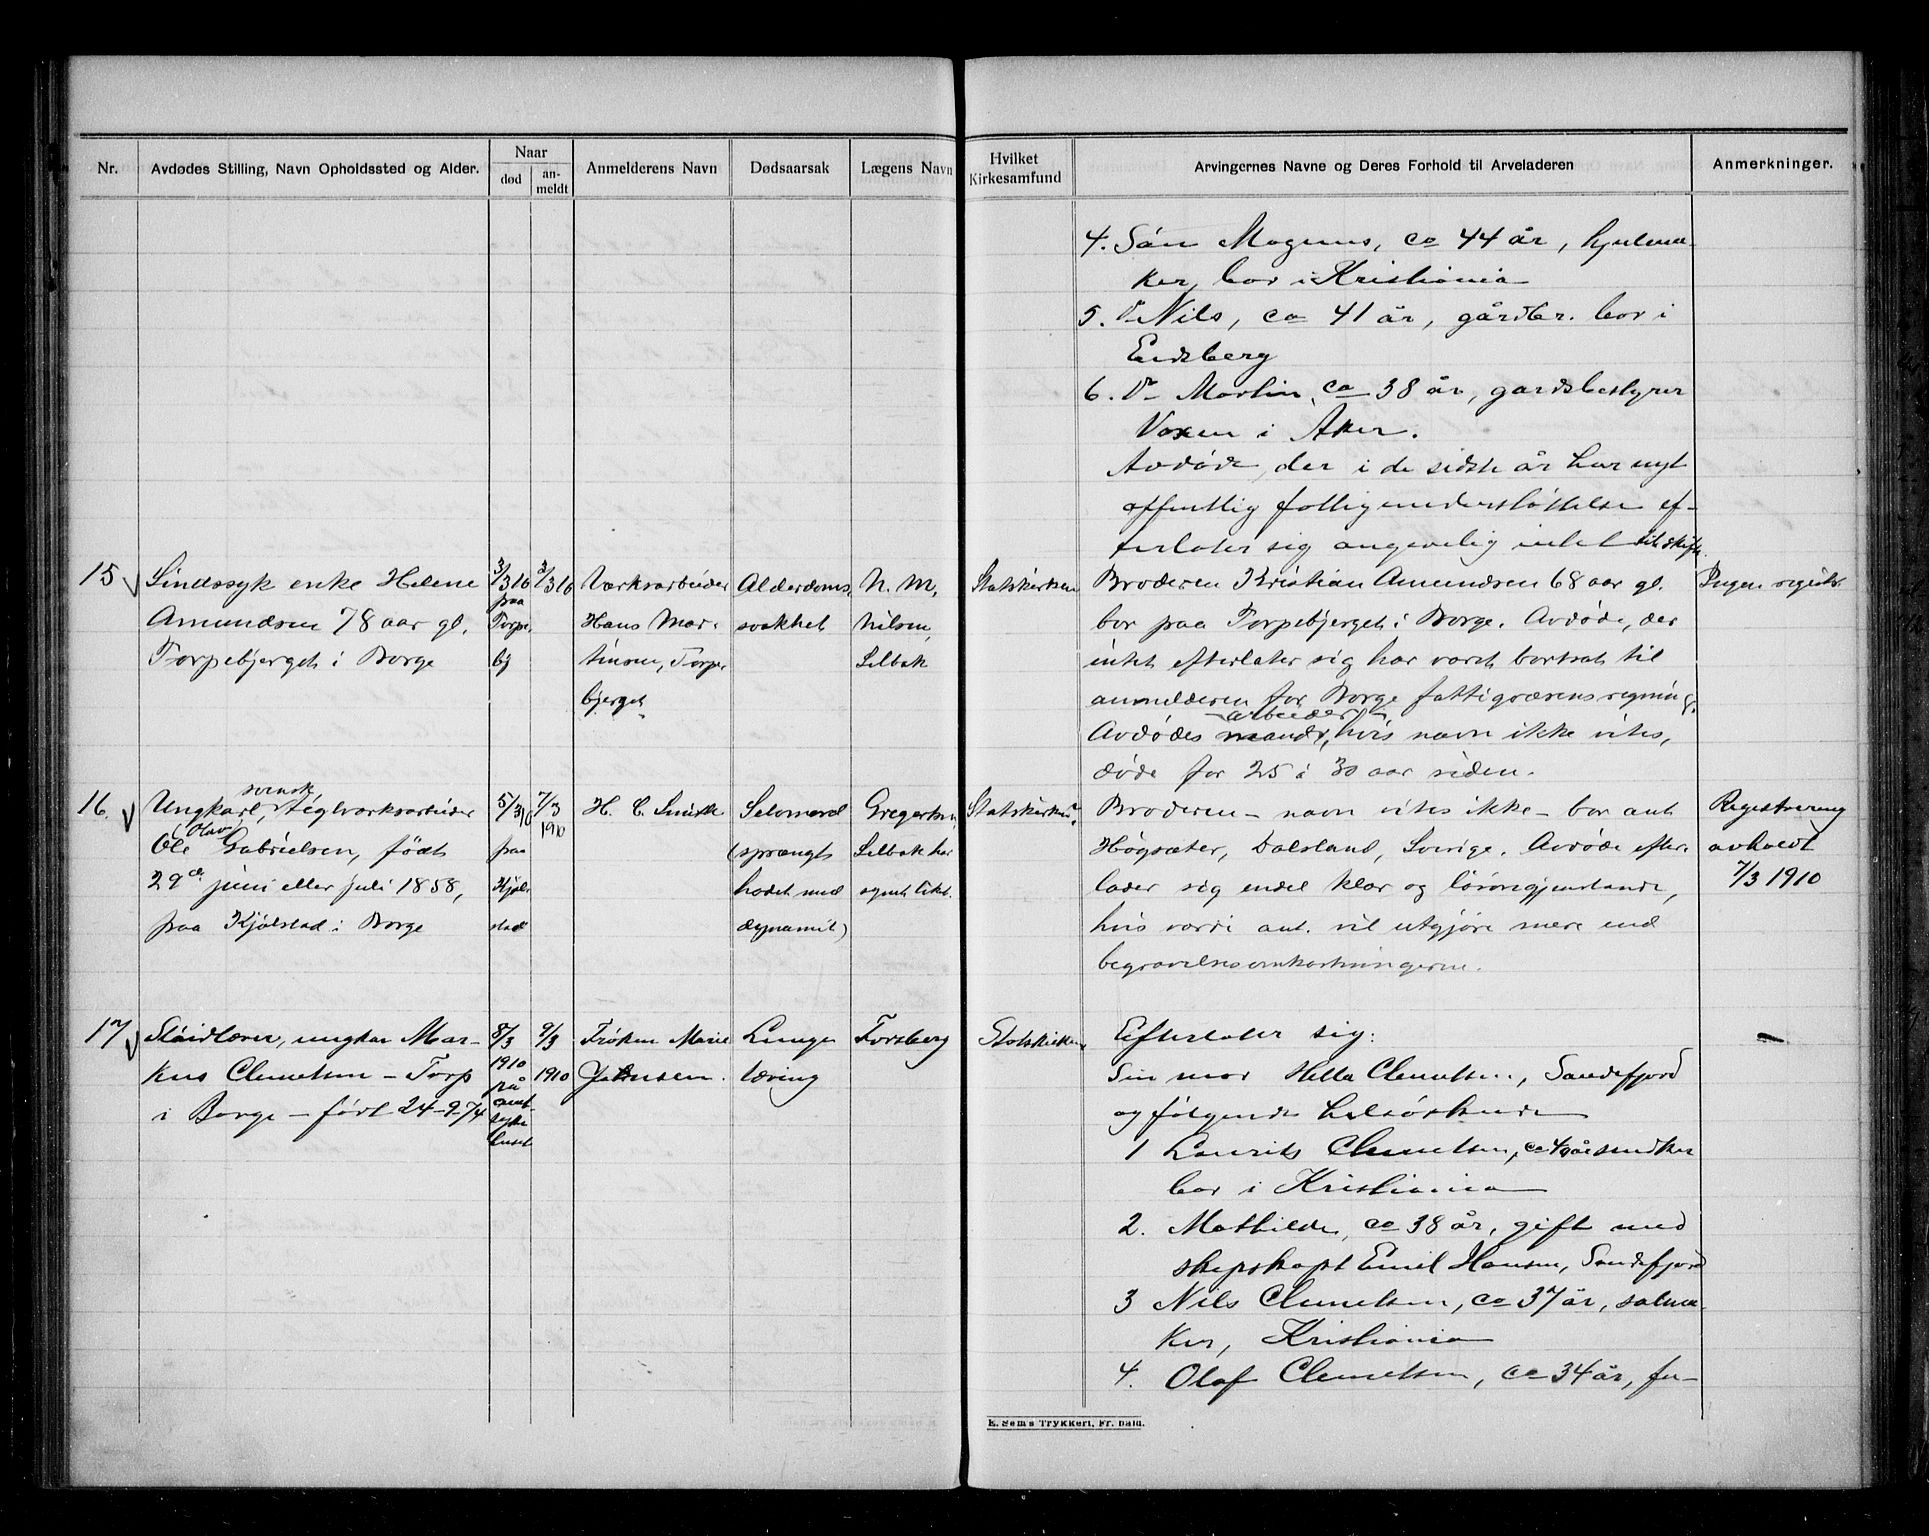 Nr.
Avdødes Stilling, Navn Opholdssted og Alder.
Naar
død
an-
meldt
Anmelderens Navn
Dødsaarsak
Lægens Navn
Hvilket
Kirkesamfund
Arvingernes Navne og Deres Forhold til Arveladeren
Anmerkninger.
4. Søn Magnus, ca 44 år, hjulma-
ker, bor i Kristiania
5. Do Nils, ca 41 år, gårdbr. bor i
Eidsberg
6. Do Martin, ca 38 år, gardsbestyrer
Voxen i Aker.
Avdøde, der i de sidste år har nyt
offentlig fattigunderstøttelse ef-
terlater sig angivelig intet til skifte.
15
Sindssyk enke Helene
Amundsen 78 aar gl.
Torpebjerget i Borge
3/3 10
paa
Torpe-
bj
3/3 10
Værksarbeider
Hans Mar-
tinsen, Torpe
bjerget
Alderdoms-
svakhet
N. M.
Nilsen,
Selbak
Statskirken
Broderen Kristian Amundsen 68 aar gl.
bor paa Torpebjerget i Borge. Avdøde, der
intet efterlater sig har været bortsat til
anmelderen for Borge fattigvæsens regning.
arbeider
Avdødes mand, hvis navn ikke vites,
døde for 25 à 30 aar siden.
Ingen registr.
16.
svensk
Ungkarl, teglværksarbeider
(Olav)
Ole Gabrielsen, født
29de juni eller juli 1858,
paa Kjølstad i Borge
5/3 10
paa
Kjøl-
stad
7/3
1910
H. C. Smith
Selvmord
(sprængt
hodet med
dynamit)
Gregertsen,
Selbak har
synet liket.
Statskirken?
Broderen – navn vites ikke – bor ant.
Høgsæter, Dalsland, Sverige. Avdøde efter-
lader sig endel klær og løsøregjenstande,
hvis værdi ant. vil utgjøre mere end
begravelsesomkostningerne.
Registrering
avholdt
7/3 1910
17
Sløidlærer, ungkar Mar-
kus Clemetsen – Torp
i Borge – født 24-9-74
8/3
1910
på
amt-
syke
huset
9/3
1910
Frøken Marie
Johnsen.
Lunge
tæring
Forsberg
Statskirken
Efterlater sig:
Sin mor Hella Clemetsen, Sandefjord
og følgende helsøskende
1 Laurits Clemetsen, ca 40 år snedker
bor i Kristiania
2. Mathilde, ca 38 år, gift med
skipskapt Emil Hansen, Sandefjord
3 Nils Clemetsen, ca 37 år, salma-
ker, Kristiania
4. Olaf Clemetsen, ca 34 år, fu-
E. Sem's Trykkeri, Fr. hald.